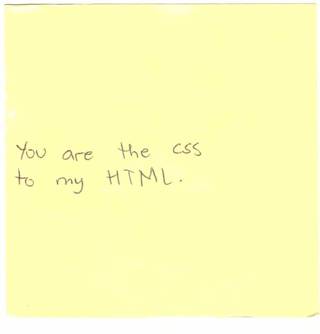 You are the css
to my HTML.